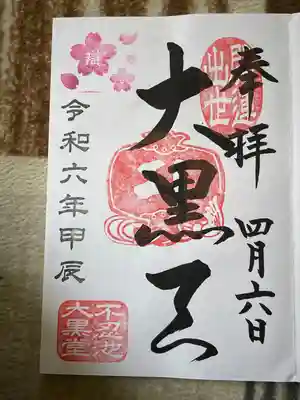 奉拝
四月六日
開運
出世
大黒天
令和六年甲辰
不忍池
大黒堂